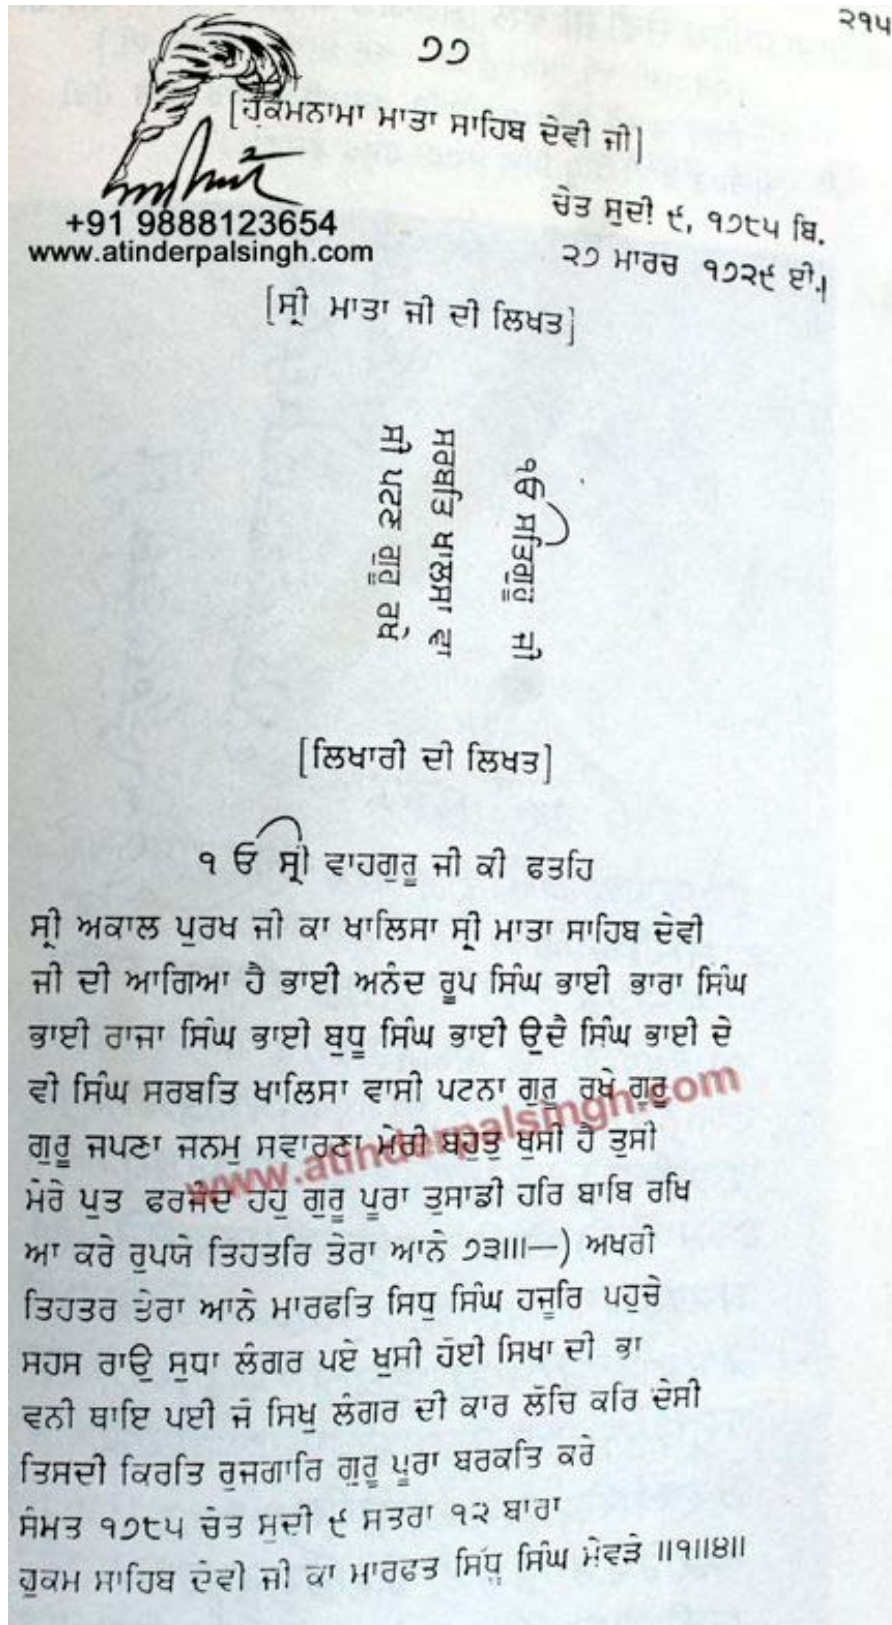 ੨੧੫
੭੭
[ਹੁਕਮਨਾਮਾ ਮਾਤਾ ਸਾਹਿਬ ਦੇਵੀ ਜੀ]
+91 9888123654
www.atinderpalsingh.com
ਚੇਤ ਸੁਦੀ ੯, ੧੭੮੫ ਬਿ.
੨੭ ਮਾਰਚ ੧੭੨੯ ਈ.]
[ਸ੍ਰੀ ਮਾਤਾ ਜੀ ਦੀ ਲਿਖਤ]
੧ਓ ਸਤਿਗੁਰੂ ਜੀ
ਸਰਬਤਿ ਖਾਲਸਾ ਦਾ
ਸੀ ਪਟਣ ਗੁਰੂ ਰਖੇ
[ਲਿਖਾਰੀ ਦੀ ਲਿਖਤ]
੧ ਓ ਸ੍ਰੀ ਵਾਹਗੁਰੂ ਜੀ ਕੀ ਫਤਹਿ
ਸ੍ਰੀ ਅਕਾਲ ਪੁਰਖ ਜੀ ਕਾ ਖਾਲਿਸਾ ਸ੍ਰੀ ਮਾਤਾ ਸਾਹਿਬ ਦੇਵੀ
ਜੀ ਦੀ ਆਗਿਆ ਹੈ ਭਾਈ ਅਨੰਦ ਰੂਪ ਸਿੰਘ ਭਾਈ ਭਾਰਾ ਸਿੰਘ
ਭਾਈ ਰਾਜਾ ਸਿੰਘ ਭਾਈ ਬੁਧੂ ਸਿੰਘ ਭਾਈ ਉਦੈ ਸਿੰਘ ਭਾਈ ਦੇ
ਵੀ ਸਿੰਘ ਸਰਬਤਿ ਖਾਲਿਸਾ ਵਾਸੀ ਪਟਨਾ ਗੁਰੂ ਰਖੇ ਗੁਰੂ
ਗੁਰੂ ਜਪਣਾ ਜਨਮੁ ਸਵਾਰਣਾ ਮੇਰੀ ਬਹੁਤੁ ਖੁਸੀ ਹੈ ਤੁਸੀ
ਮੇਰੇ ਪੁਤ ਫਰਜੰਦ ਹਹੁ ਗੁਰੂ ਪੂਰਾ ਤੁਸਾਡੀ ਹਰਿ ਬਾਬਿ ਰਖਿ
ਆ ਕਰੇ ਰੁਪਯੇ ਤਿਹਤਰਿ ਤੇਰਾ ਆਨੇ ੭੩॥।—) ਅਖਰੀ
ਤਿਹਤਰ ਤੇਰਾ ਆਨੇ ਮਾਰਫਤਿ ਸਿਧੁ ਸਿੰਘ ਹਜੂਰਿ ਪਹੁਚੇ
ਸਹਸ ਰਾਉ ਸੁਧਾ ਲੰਗਰ ਪਏ ਖੁਸੀ ਹੋਈ ਸਿਖਾ ਦੀ ਭਾ
ਵਨੀ ਥਾਇ ਪਈ ਜੋ ਸਿਖੁ ਲੰਗਰ ਦੀ ਕਾਰ ਲੋਚਿ ਕਰਿ ਦੇਸੀ
ਤਿਸਦੀ ਕਿਰਤਿ ਰੁਜਗਾਰਿ ਗੁਰੂ ਪੂਰਾ ਬਰਕਤਿ ਕਰੇ
ਸੰਮਤ ੧੭੮੫ ਚੇਤ ਸੁਦੀ ੯ ਸਤਰਾ ੧੨ ਬਾਰਾ
ਹੁਕਮ ਸਾਹਿਬ ਦੇਵੀ ਜੀ ਕਾ ਮਾਰਫਤ ਸਿਧੂ ਸਿੰਘ ਮੇਵੜੇ ॥੧॥੪॥
www.atinderpalsingh.com